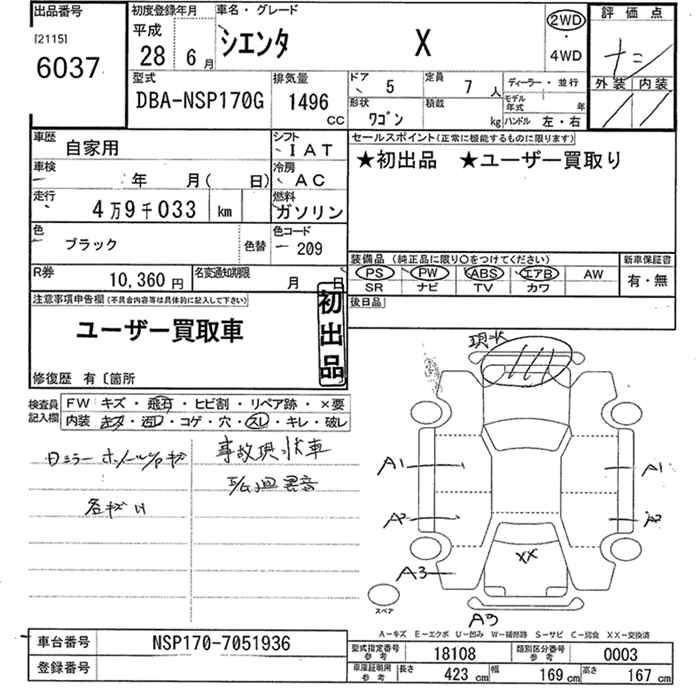 出品番号
[2115]
6037
初度登録年月
平成
28年
6月
車名・グレード
シエンタ X
2WD
・
4WD
評価点
外装 内装
型式
DBA-NSP170G
排気量
1496
CC
ドア
5
定員
7人
ディーラー・並行
形状
ワゴン
積載
kg
モデル年式 年
ハンドル 左・右
車歴
自家用
シフト
IAT
セールスポイント(正常に機能するものに限ります)
★初出品 ★ユーザー買取り
車検
年 月( 日)
冷房
AC
走行
4万9千033 km
燃料
ガソリン
色
ブラック
色替
色コード
209
装備品(純正品に限り○をつけてください)
PS PW ABS エアB AW
SR ナビ TV カワ
新車保証書
有・無
R券
10,360円
名変通知期限
月 日
後日品
注意事項申告欄(不具合内容等は具体的に記入して下さい)
ユーザー買取車
初出品
修復歴 有〔箇所
検査員記入欄
FW キズ・飛石・ヒビ割・リペア跡・×要
内装 キズ・汚レ・コゲ・穴・スレ・キレ・破レ
事故現状車
現状
A1
A1
A2
A2
XX
A3
A3
スペア
A-キズ E-エクボ U-凹み W-補修跡 S-サビ C-腐食 XX-交換済
車台番号
NSP170-7051936
登録番号
型式指定番号
参考
18108
類別区分番号
参考
0003
車庫証明用
参考
長さ
423 cm
幅
169 cm
高さ
167 cm